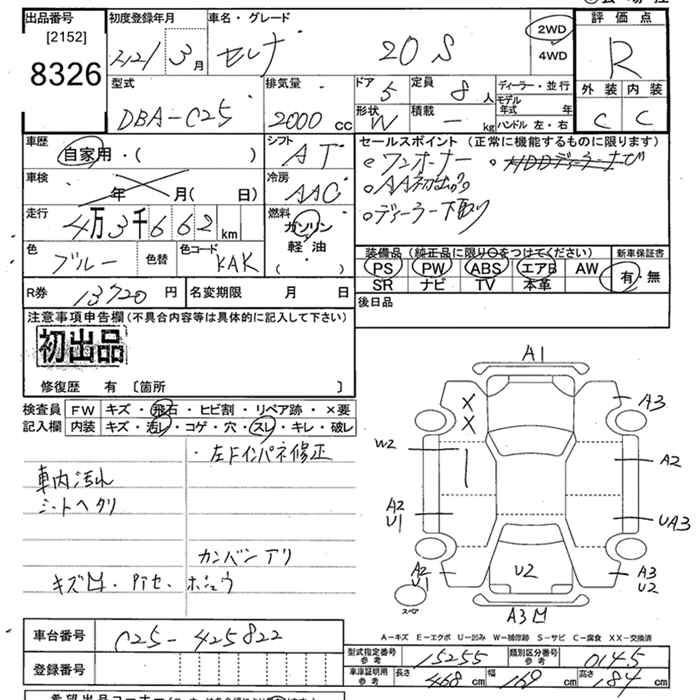 出品番号 初度登録年月 車名・グレード 評価点
[2152] H21 3月 セレナ 20S 2WD R
8326 4WD
型式 排気量 ドア 定員 ディーラー・並行 外装 内装
DBA-C25 2000cc 5 8人 モデル年式 年 C C
形状 積載 ハンドル 左・右
W - kg
車歴 シフト セールスポイント(正常に機能するものに限ります)
自家用・( ) AT ワンオーナー
車検 冷房 AA初出品
年 月( 日) AAC ディーラー下取り
走行 燃料
4万3千662km ガソリン
軽・油
色 色替 色コード ( )
ブルー KAK
装備品(純正品に限り○をつけてください) 新車保証書
PS PW ABS エアB AW 有・無
SR ナビ TV 本革
R券 13720円 名変期限 月 日 後日品
注意事項申告欄(不具合内容等は具体的に記入して下さい)
初出品
修復歴 有 〔箇所 〕
検査員 FW キズ・飛石・ヒビ割・リペア跡・×要
記入欄 内装 キズ・汚レ・コゲ・穴・スレ・キレ・破レ
・左Fインパネ修正
車内汚れ
シートヘタリ
カンバンアリ
A1
A3
X
X
W2 A2
A2 U1 UA3
A2 U1 U2 A3 U2
スペア
A3
A-キズ E-エクボ U-凹み W-補修跡 S-サビ C-腐食 XX-交換済
車台番号 C25-425822
型式指定番号 参考 15255 類別区分番号 参考 0145
登録番号
車庫証明用 参考 長さ 468cm 幅 169cm 高さ 184cm